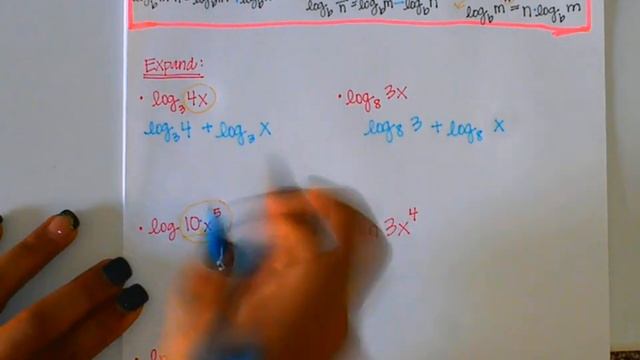 log_b n = log_b m - log_b n
log_b m = n·log_b m
Expand:
• log₃ 4x
log₃ 4 + log₃ x
• log₈ 3x
log₈ 3 + log₈ x
• log 10x⁵
3x⁴